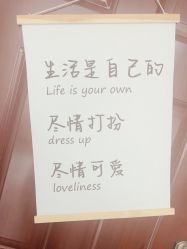 生活是自己的
Life is your own
尽情打扮
dress up
尽情可爱
loveliness